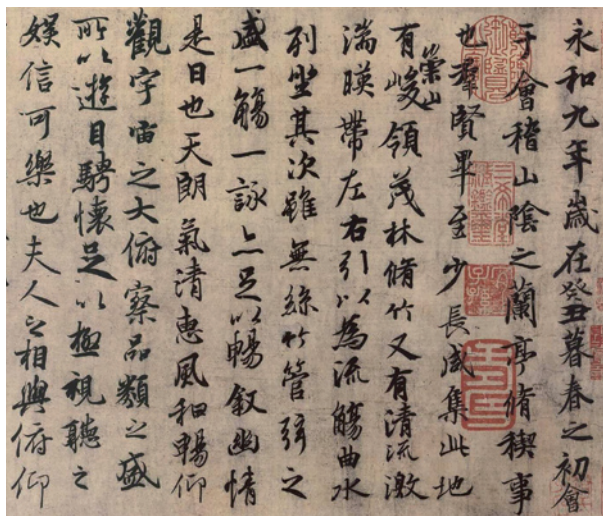 永和九年歲在癸丑暮春之初會
于會稽山陰之蘭亭脩稧事
也羣賢畢至少長咸集此地
有崇山峻領茂林脩竹又有清流激
湍暎帶左右引以為流觴曲水
列坐其次雖無絲竹管弦之
盛一觴一詠亦足以暢叙幽情
是日也天朗氣清惠風和暢仰
觀宇宙之大俯察品類之盛
所以遊目騁懷足以極視聽之
娛信可樂也夫人之相與俯仰
三希堂精鑑璽
宜子孫